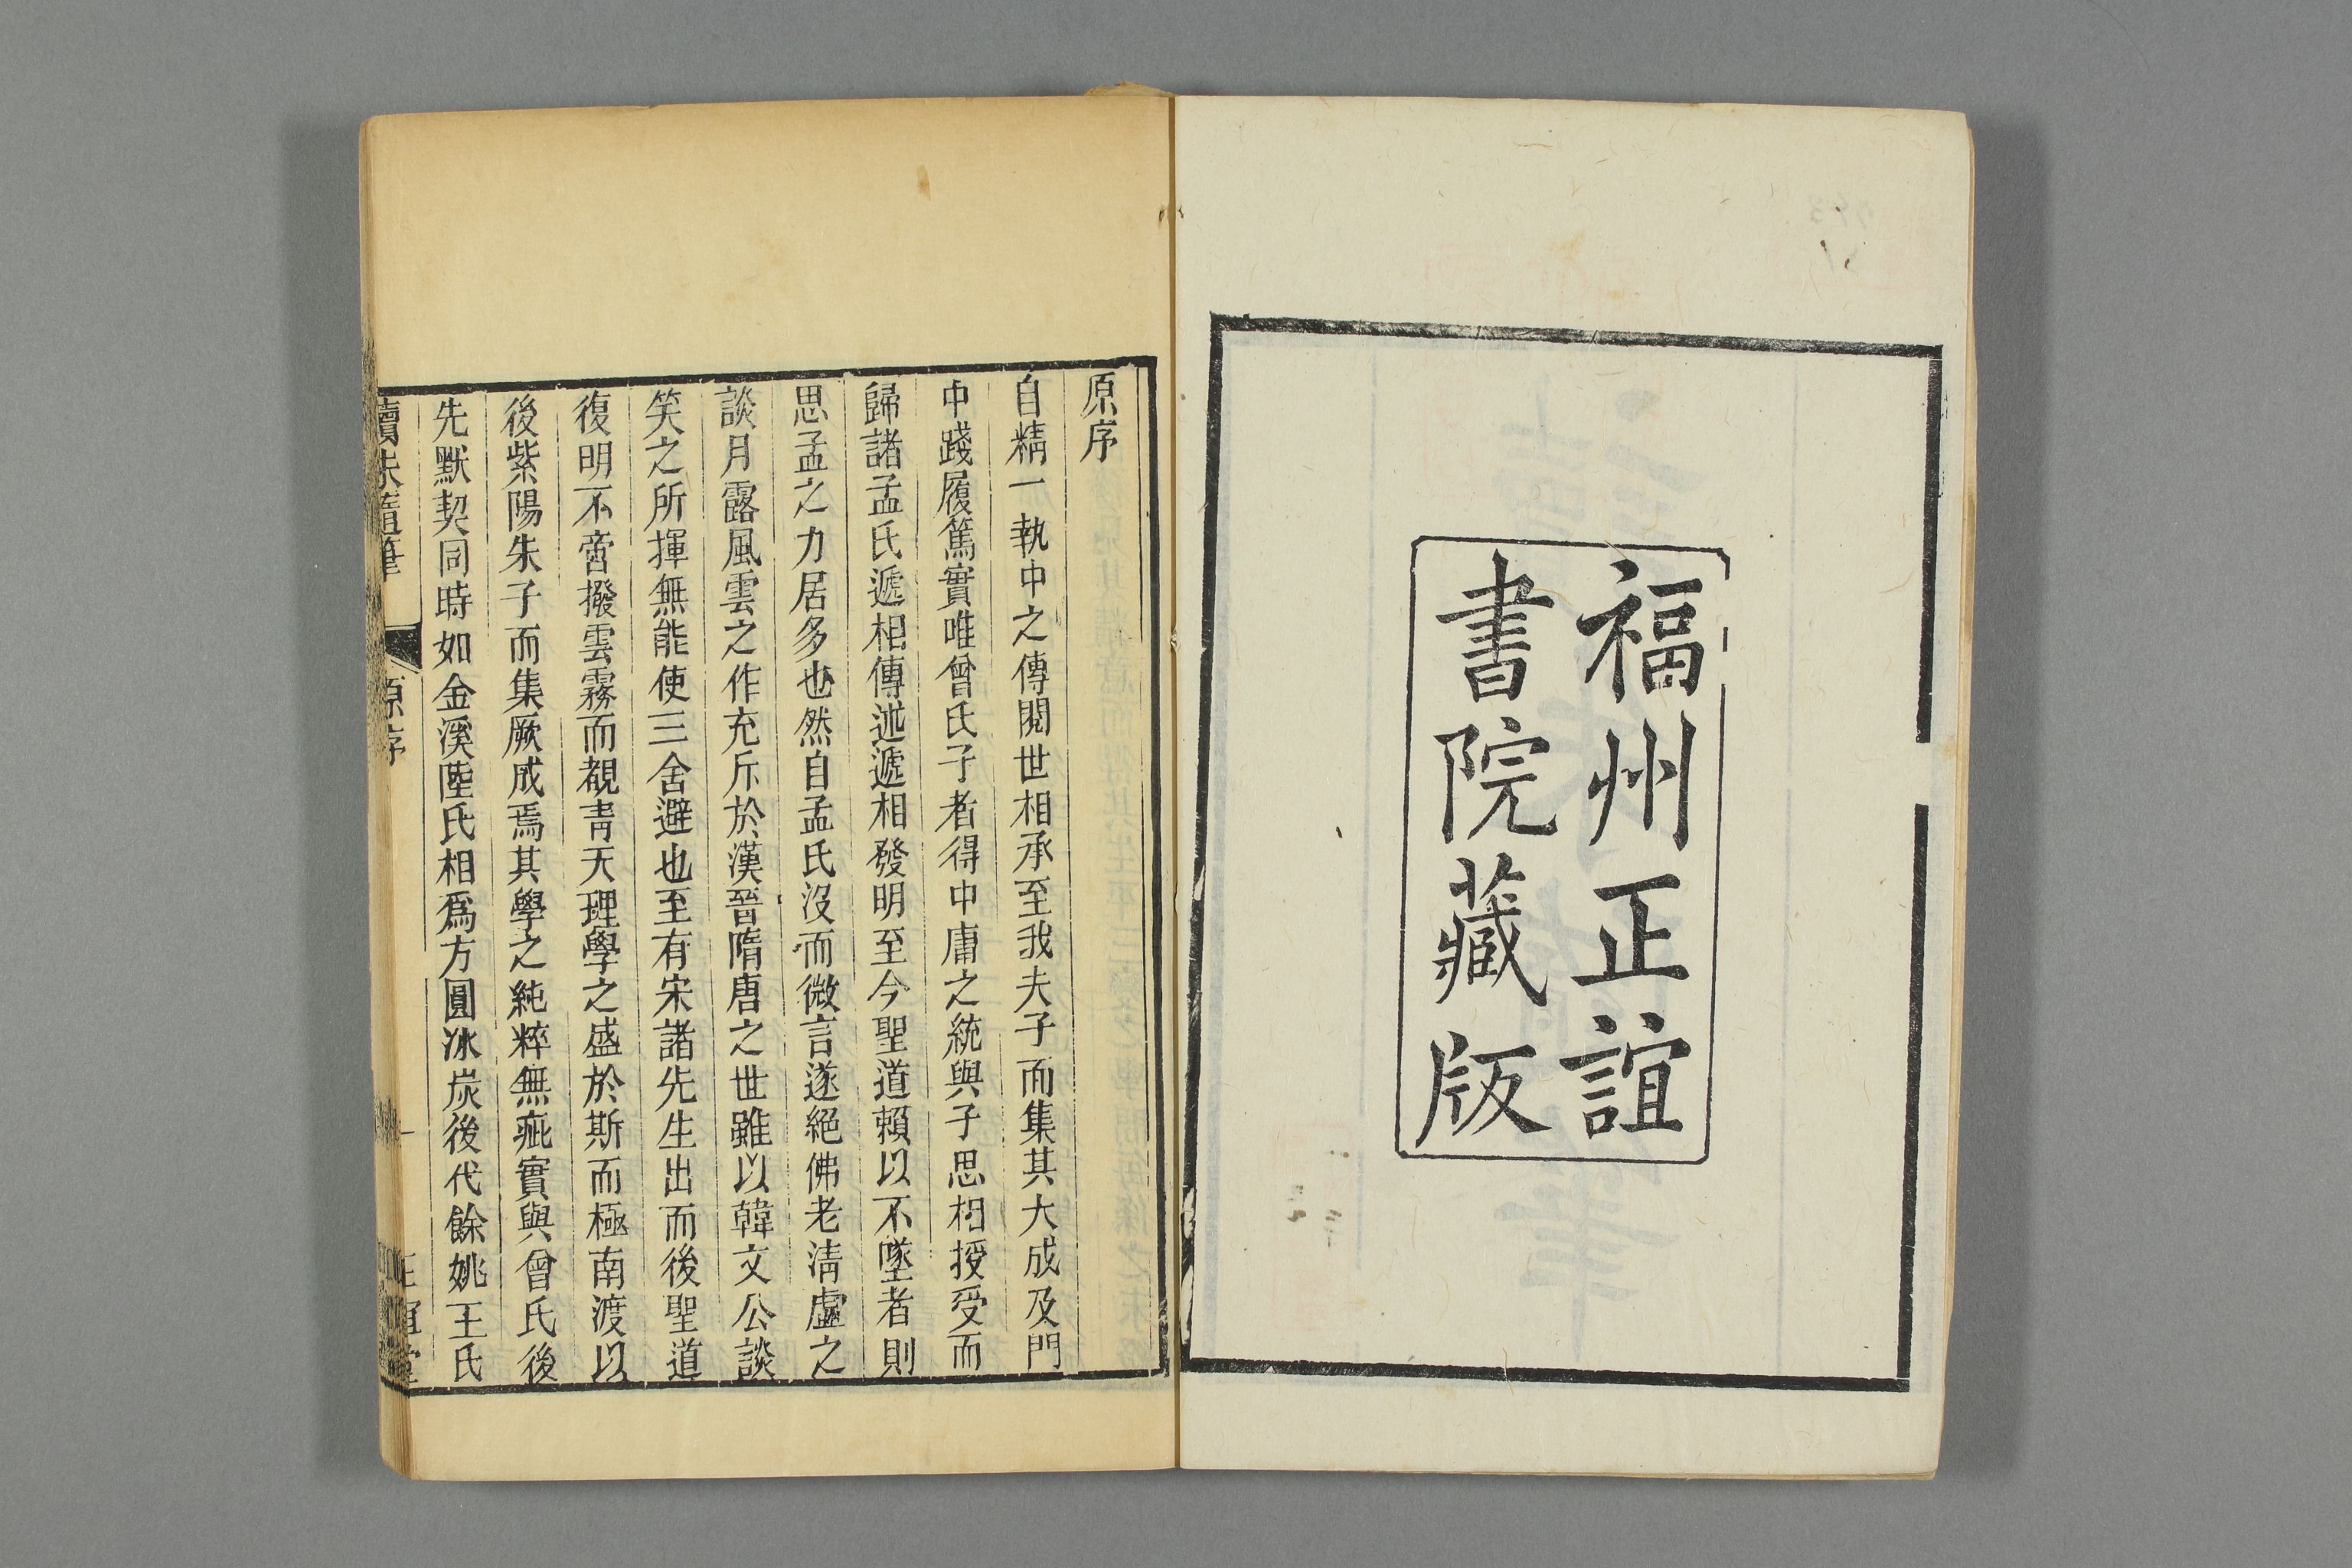 福州正誼
書院藏版
原序
自精一執中之傳閱世相承至我夫子而集其大成及門
中踐履篤實唯曾氏子者得中庸之統與子思相授受而
歸諸孟氏遞相傳述遞相發明至今聖道賴以不墜者則
思孟之力居多也然自孟氏沒而微言遂絕佛老清虛之
談月露風雲之作充斥於漢晉隋唐之世雖以韓文公談
笑之所揮無能使三舍避也至有宋諸先生出而後聖道
復明不啻撥雲霧而覩青天理學之盛於斯而極南渡以
後紫陽朱子而集厥成焉其學之純粹無疵實與曾氏後
先默契同時如金溪陸氏相爲方圓冰炭後代餘姚王氏
讀朱隨筆
原序
一
正誼堂